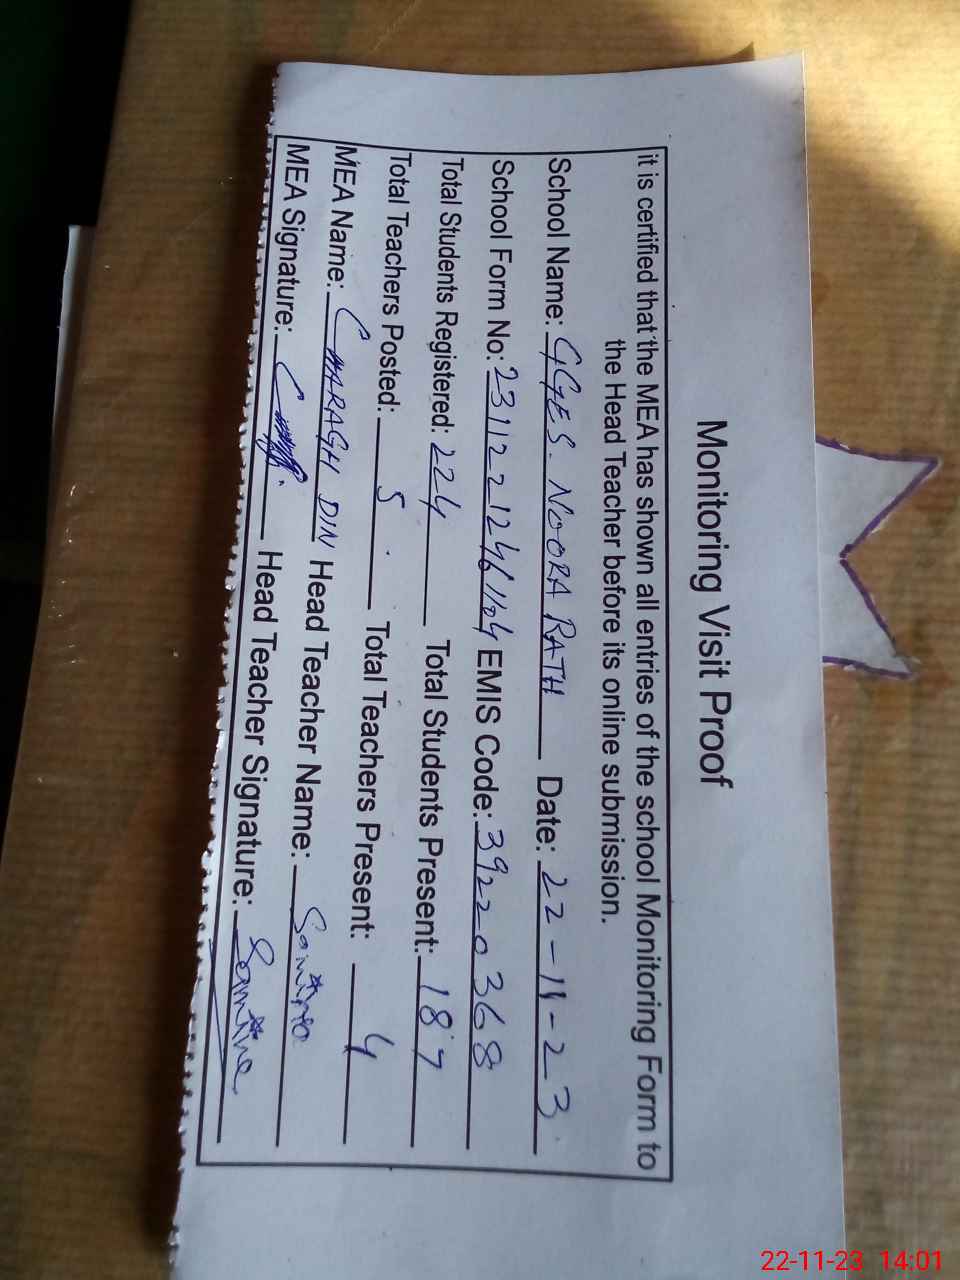 Monitoring Visit Proof
it is certified that the MEA has shown all entries of the school Monitoring Form to
the Head Teacher before its online submission.
School Name: GGES. NOORA RATH Date: 22-11-23
School Form No: 23112212461104 EMIS Code: 39220368
Total Students Registered: 224 Total Students Present: 187
Total Teachers Posted: 5 Total Teachers Present: 4
MEA Name: CHARAGH DIN Head Teacher Name:
MEA Signature: Head Teacher Signature:
22-11-23 14:01